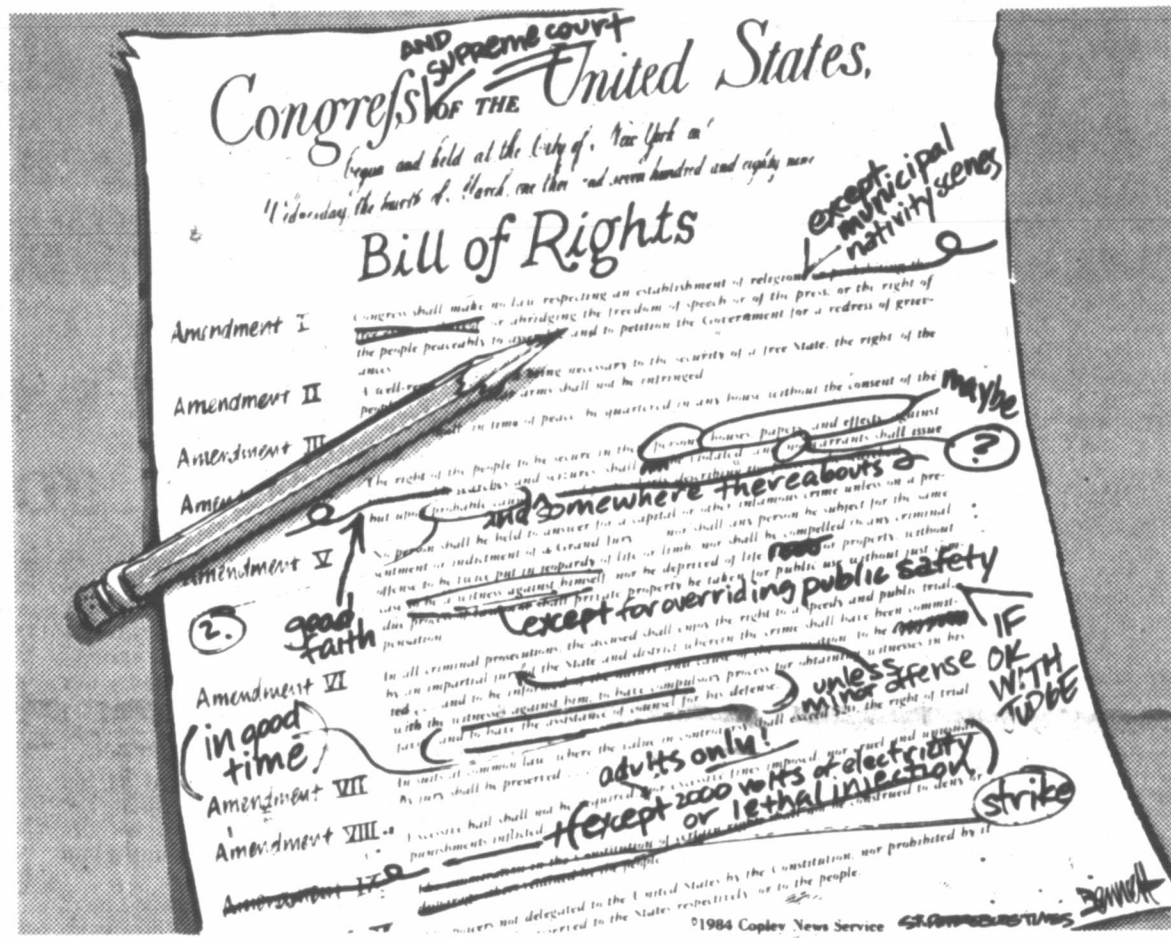 AND
SUPREME COURT
Congreſs OF THE United States,
begun and held at the City of New York on
Wednesday the fourth of March, one thousand seven hundred and eighty nine
except
municipal
nativity scenes
Bill of Rights
Amendment I
Congress shall make no law respecting an establishment of religion prohibiting the
or abridging the freedom of speech or of the press; or the right of
the people peaceably to and to petition the Government for a redress of griev-
ances
Amendment II
A well being necessary to the security of a free State, the right of the
arms shall not be infringed
Amendment III
in time of peace be quartered in any house without the consent of the
maybe
The right of the people to be secure in the person houses papers and effects against
searches and seizures shall be violated and no warrants shall issue
?
but upon probable
and somewhere thereabouts
Amendment V
No person shall be held to answer for a capital or other infamous crime unless on a pre-
sentment or indictment of a Grand Jury nor shall any person be subject for the same
offense to be twice put in jeopardy of life or limb, nor shall be compelled in any criminal
case to be a witness against himself nor be deprived of life or property, without
due process of shall private property be taken for public use without just com-
pensation
2.
good
faith
except for overriding public safety
Amendment VI
In all criminal prosecutions, the accused shall enjoy the right to a speedy and public trial
by an impartial jury of the State and district wherein the crime shall have been commit-
ted and to be informed of the nature and cause of the to be witnesses in his
with the witnesses against him, to have compulsory process for obtaining
favor, and to have the assistance of counsel for his defense.
IF
OK
WITH
JUDGE
unless
minor offense
in good
time
Amendment VII
In suits at common law, where the value in controversy shall exceed the right of trial
by jury shall be preserved
adults only!
Amendment VIII
Excessive bail shall not be required nor excessive fines imposed, nor cruel and unusual
punishments inflicted
(except 2000 volts of electricity
or lethal injection)
strike
Amendment IX
construed to deny or
by the people
powers not delegated to the United States by the Constitution, nor prohibited by it
reserved to the States respectively, or to the people.
©1984 Copley News Service
Bennett